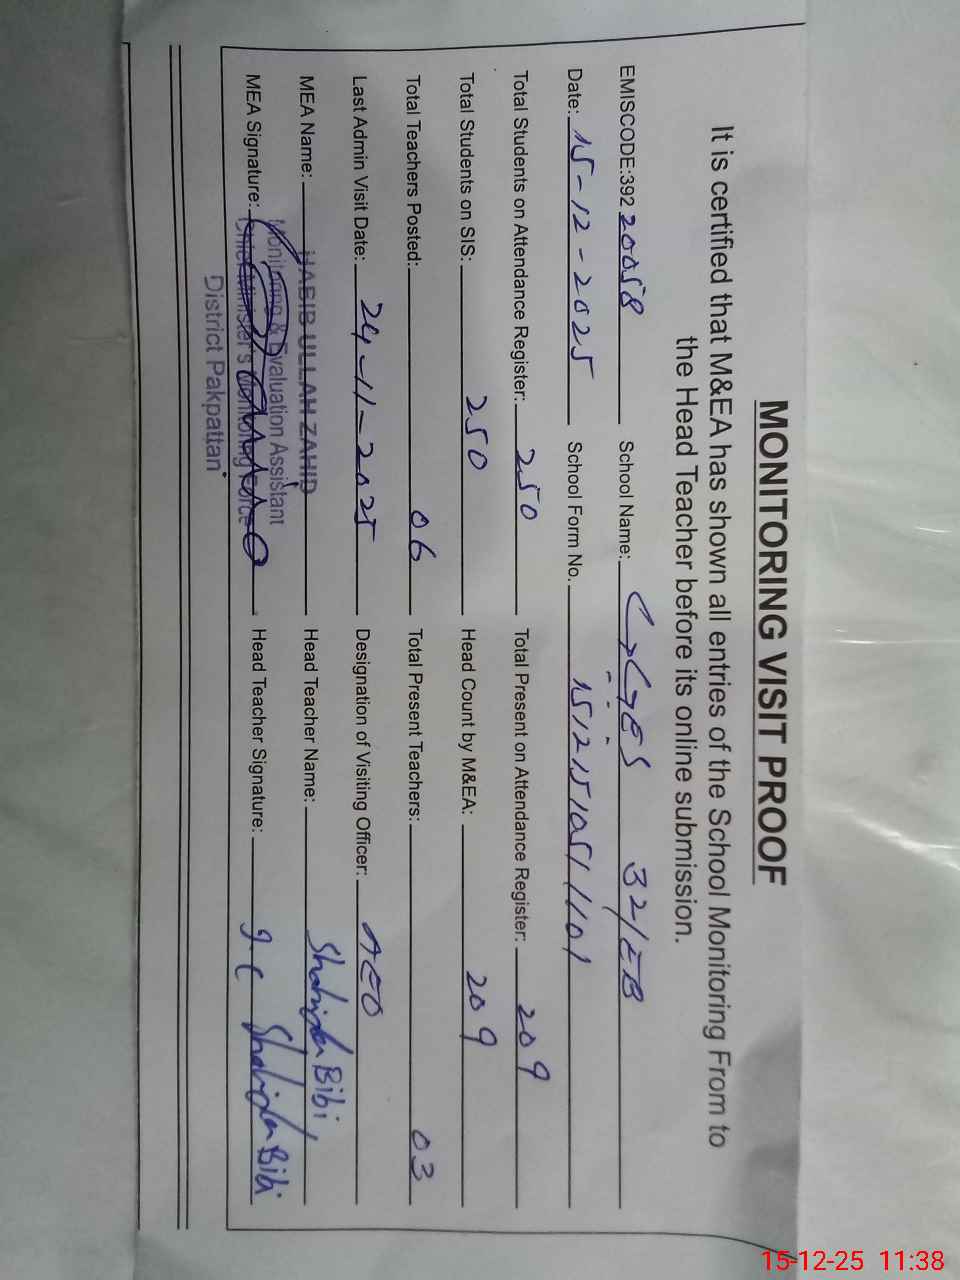 MONITORING VISIT PROOF
It is certified that M&EA has shown all entries of the School Monitoring From to
the Head Teacher before its online submission.
EMISCODE:392 20058 School Name: GGES 32/EB
Date: 15-12-2025 School Form No. 15121510511101
Total Students on Attendance Register: 250 Total Present on Attendance Register: 209
Total Students on SIS: 250 Head Count by M&EA: 209
Total Teachers Posted: 06 Total Present Teachers: 03
Last Admin Visit Date: 24-11-2025 Designation of Visiting Officer: AEO
MEA Name: HABIB ULLAH ZAHID Head Teacher Name: Shahida Bibi
Monitoring & Evaluation Assistant
MEA Signature: Chief Minister's Monitoring Force Head Teacher Signature: Shahida Bibi
District Pakpattan
15-12-25 11:38